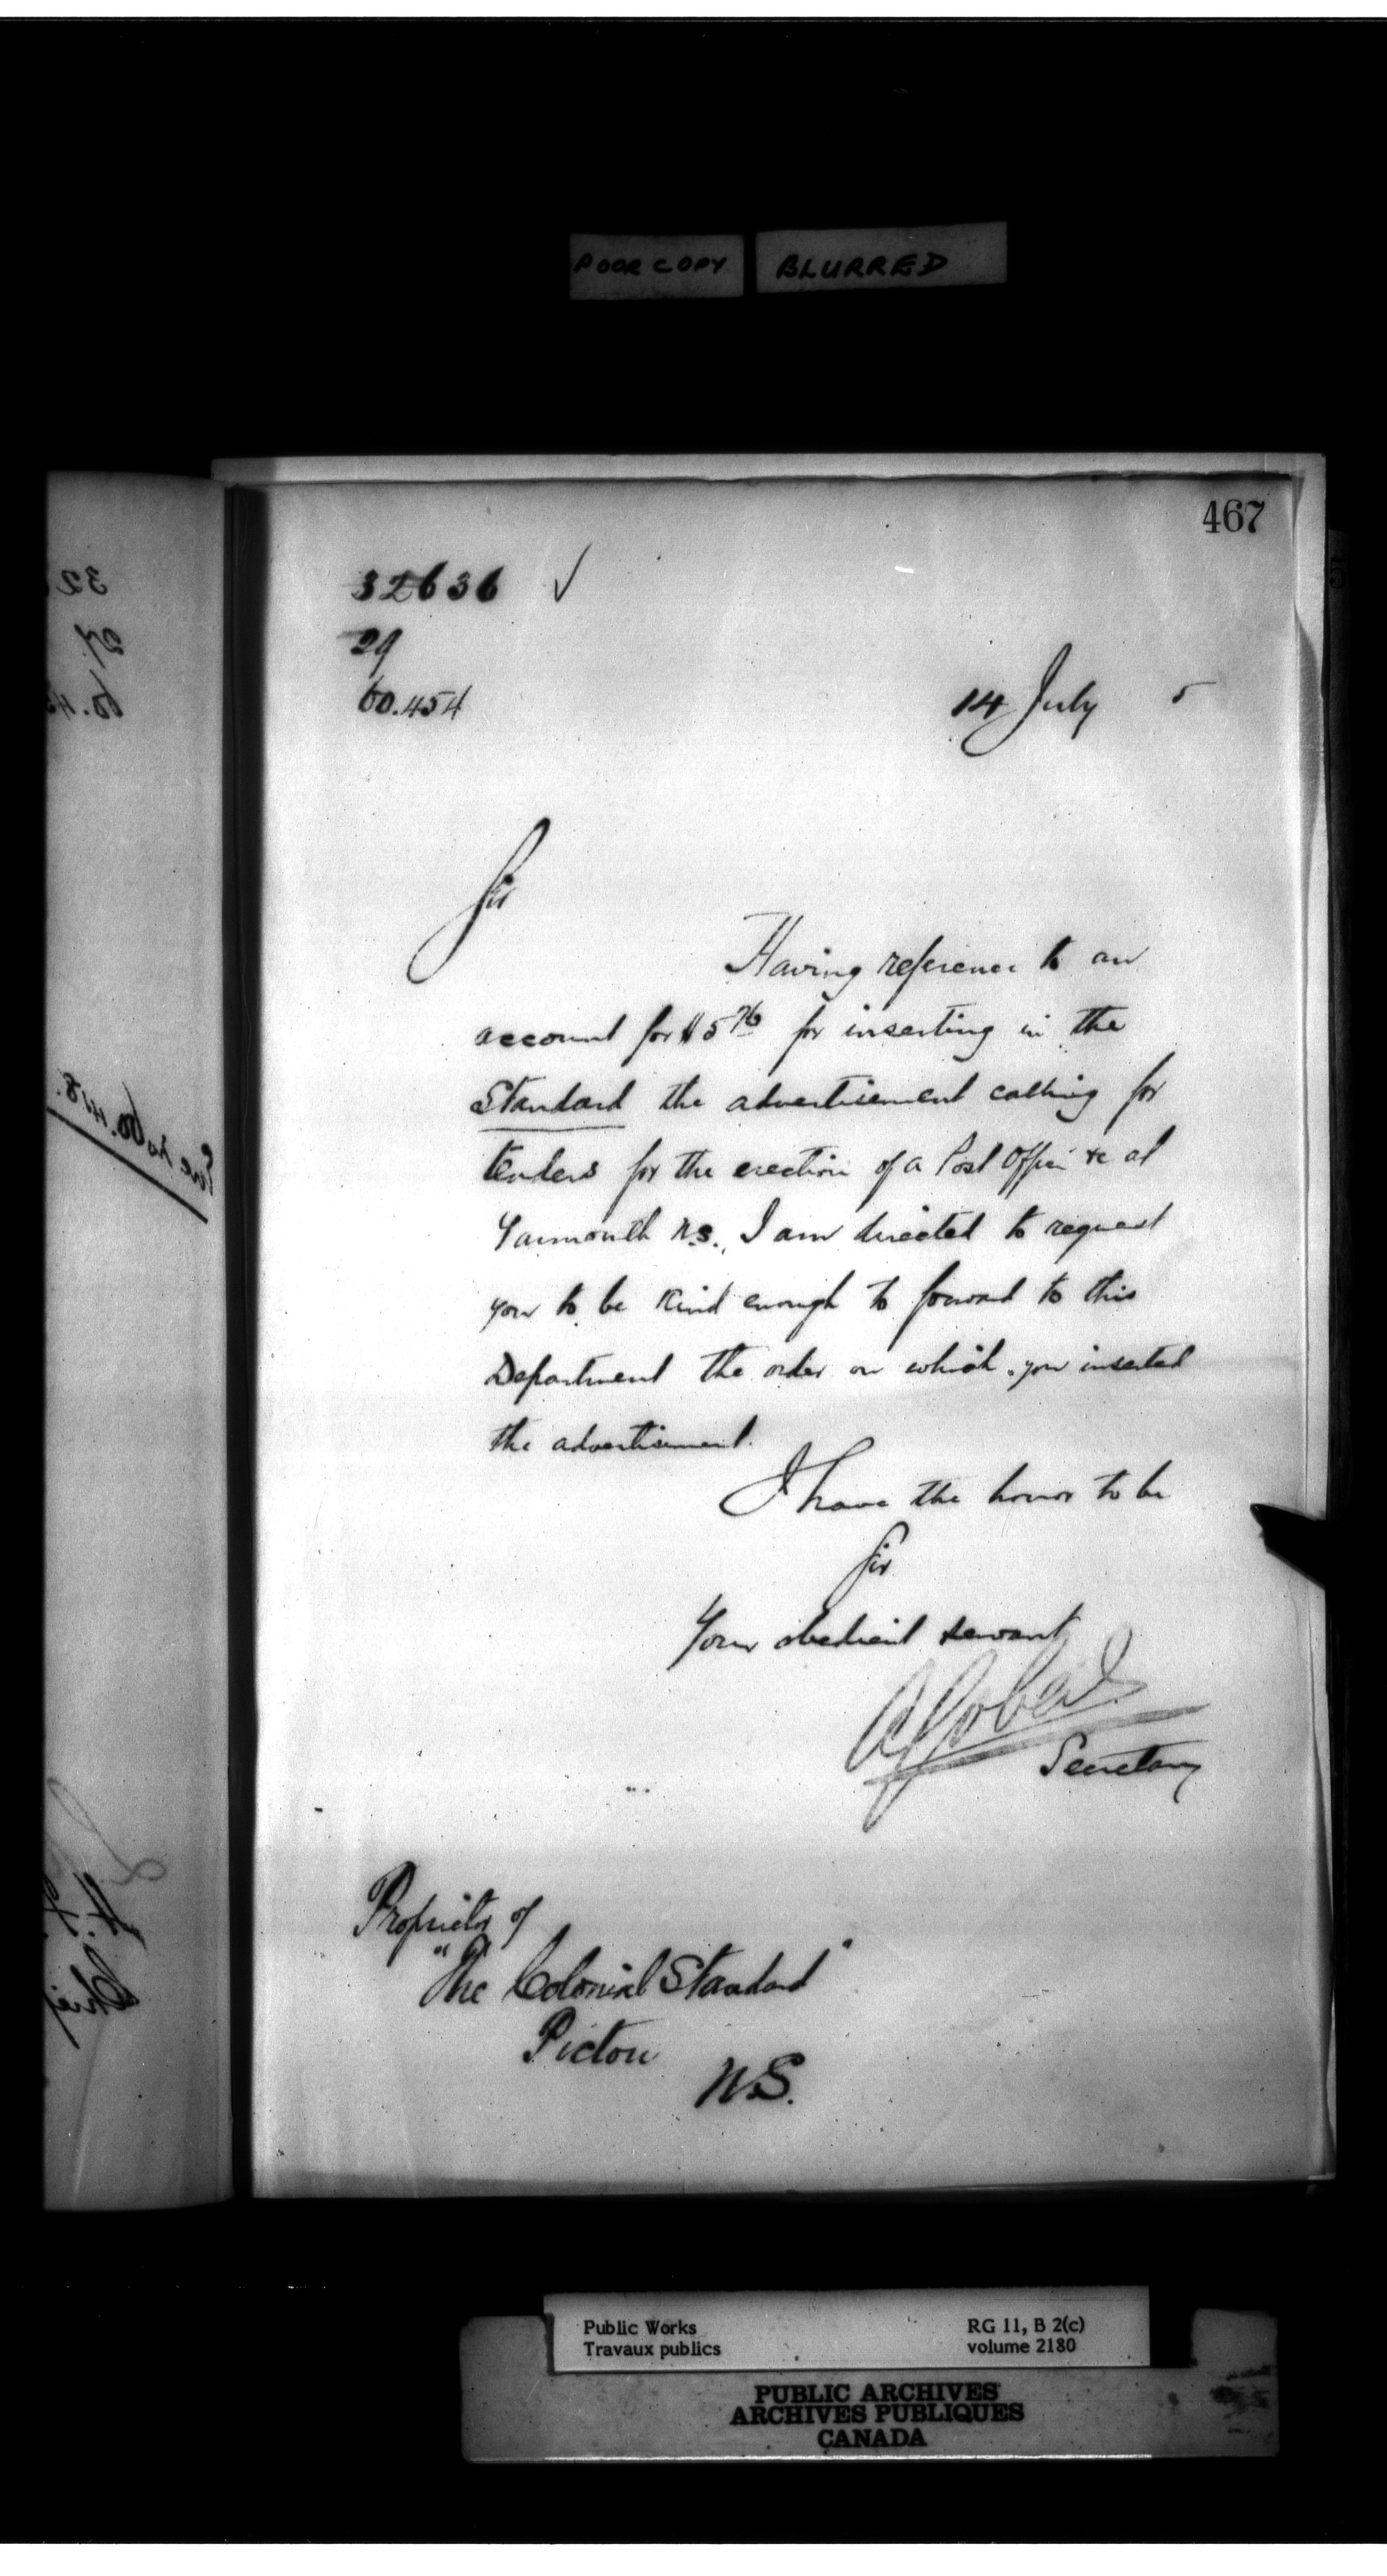 POOR COPY BLURRED
467
32636 ✓
29
60.454
14 July 5
Sir
Having reference to an
account for $5 76 for inserting in the
Standard the advertisement calling for
tenders for the erection of a Post Office &c at
Yarmouth N.S., I am directed to request
you to be kind enough to forward to this
Department the order on which you inserted
the advertisement.
I have the honor to be
Sir
Your obedient servant
Secretary
Proprietor of
"The Colonial Standard"
Pictou
N.S.
Public Works RG 11, B 2(c)
Travaux publics volume 2180
PUBLIC ARCHIVES
ARCHIVES PUBLIQUES
CANADA